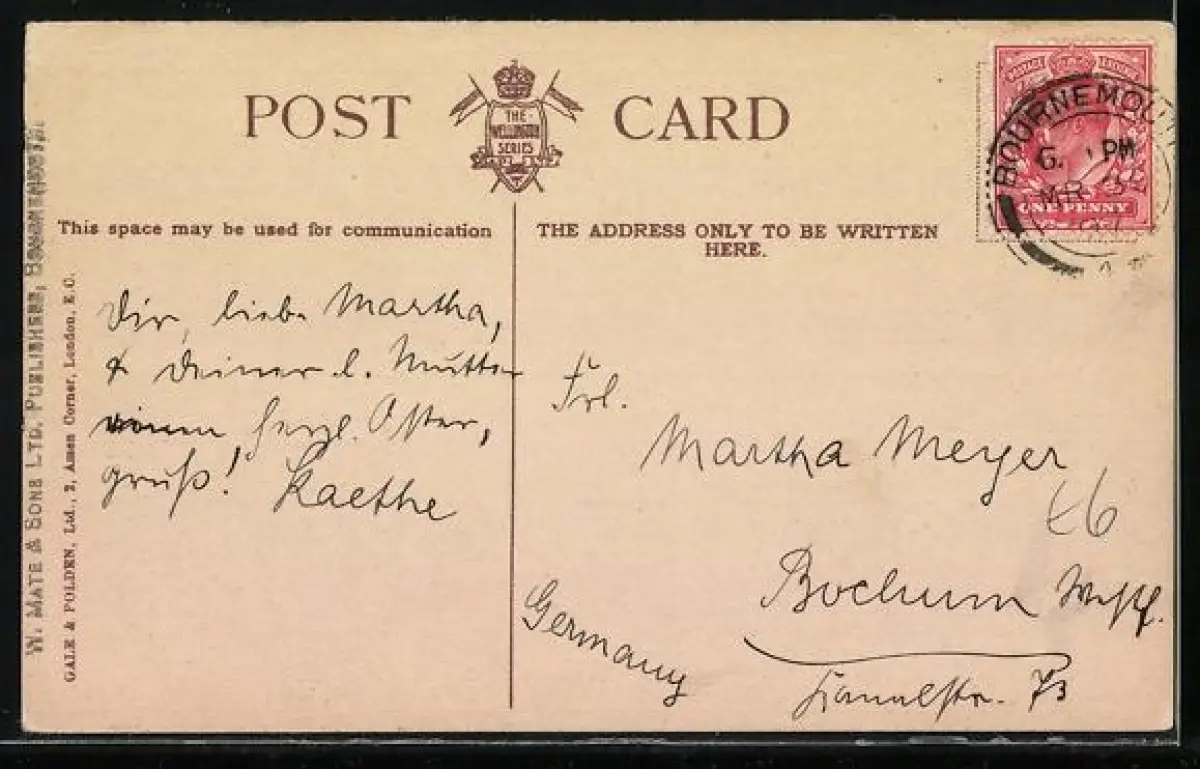 POST CARD
THE
WELLINGTON
SERIES
BOURNEMOUTH
6. PM
MR
ONE PENNY
This space may be used for communication
THE ADDRESS ONLY TO BE WRITTEN
HERE.
Dir, liebe Martha,
& Deiner l. Mutter
herzl. Oster,
gruß! Kaethe
Frl.
Martha Meyer
Bochum Westf.
Germany
73
W. MATE & SONS LTD. PUBLISHERS, BOURNEMOUTH.
GALE & POLDEN, Ltd., 2, Amen Corner, London, E.C.